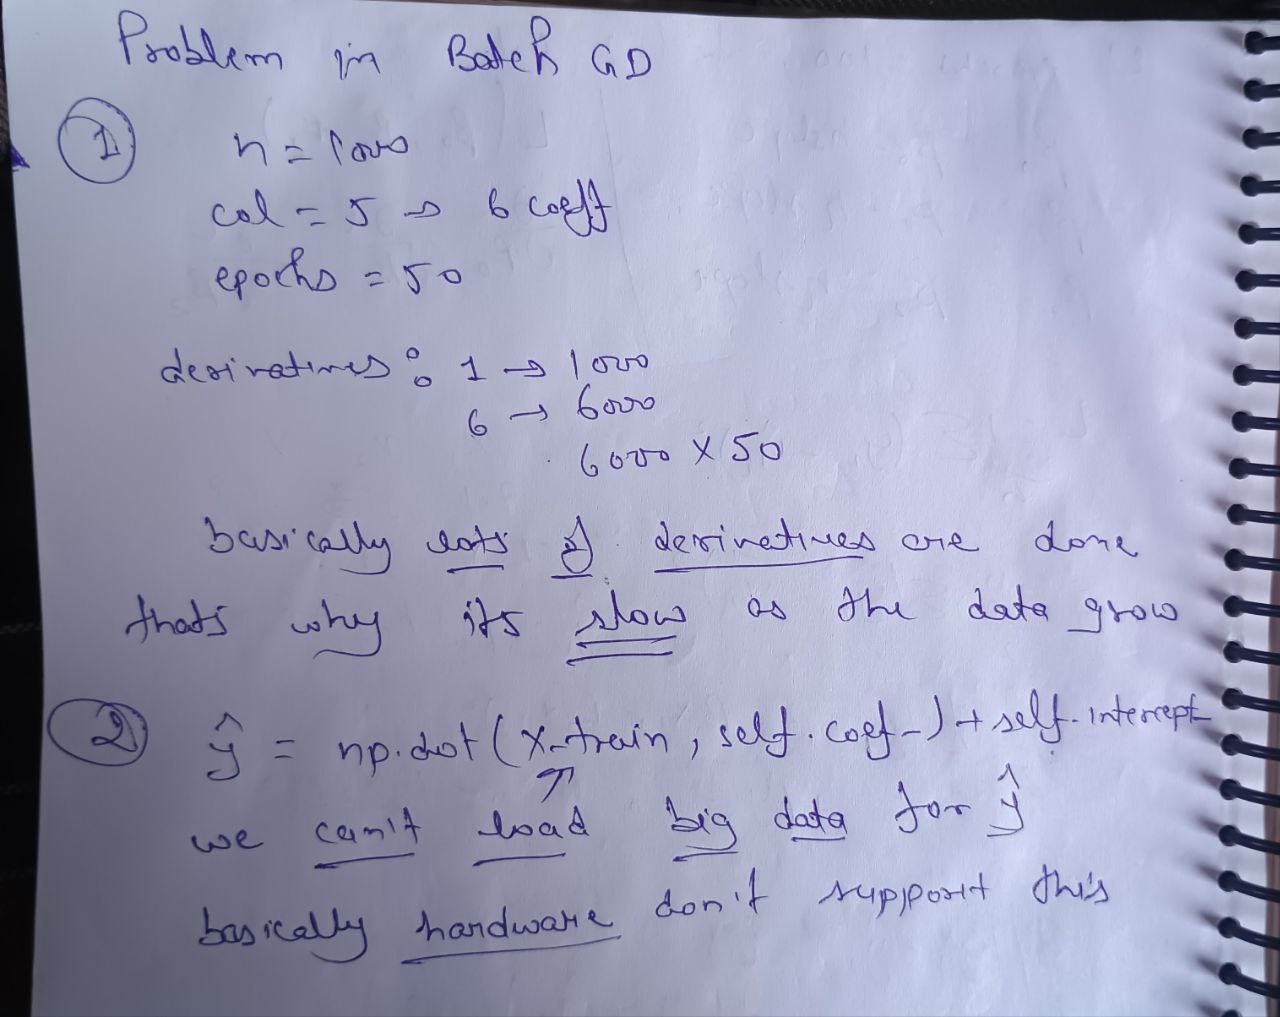 Problem in Batch GD
1 n = 1000
col = 5 → 6 coeff
epochs = 50
derivatives : 1 → 1000
6 → 6000
6000 X 50
basically lots of derivatives are done
thats why its slow as the data grow
2 ŷ = np.dot (X_train, self.coef_) + self.intercept_
we can't load big data for ŷ
basically hardware don't support this